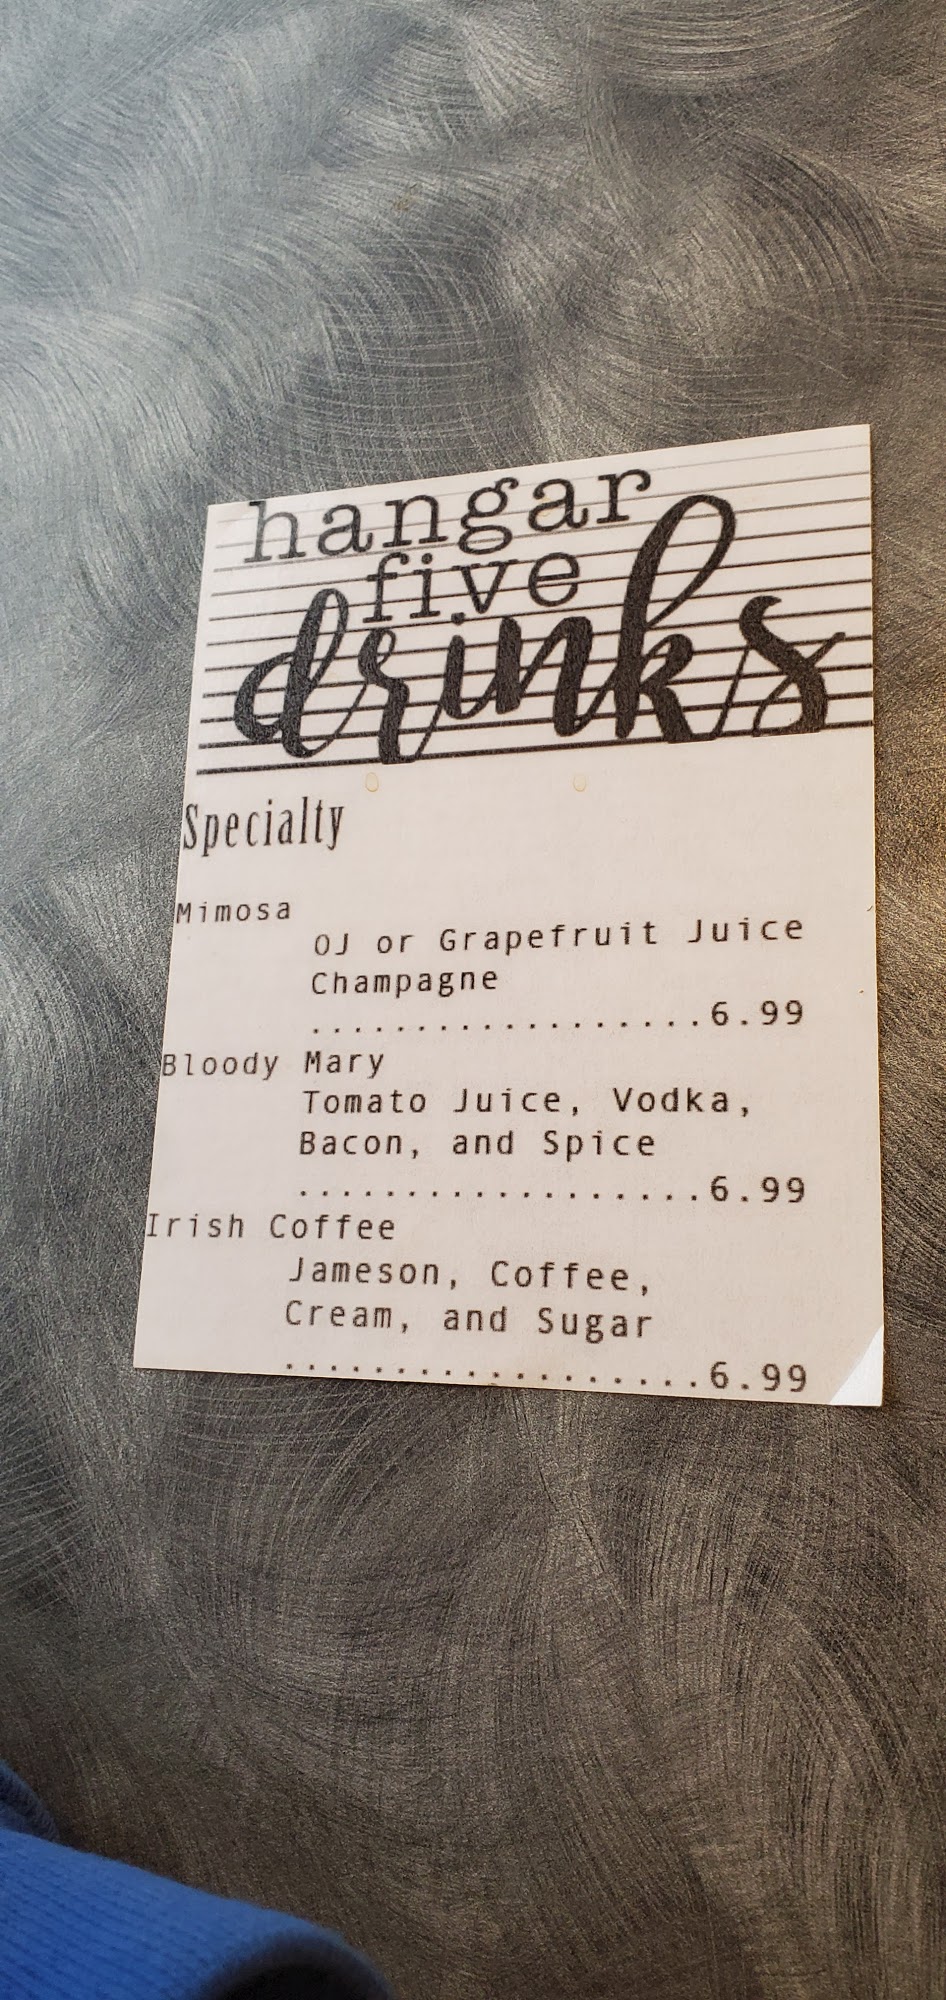 hangar
five
drinks
Specialty
Mimosa
OJ or Grapefruit Juice
Champagne
...................6.99
Bloody Mary
Tomato Juice, Vodka,
Bacon, and Spice
...................6.99
Irish Coffee
Jameson, Coffee,
Cream, and Sugar
...................6.99